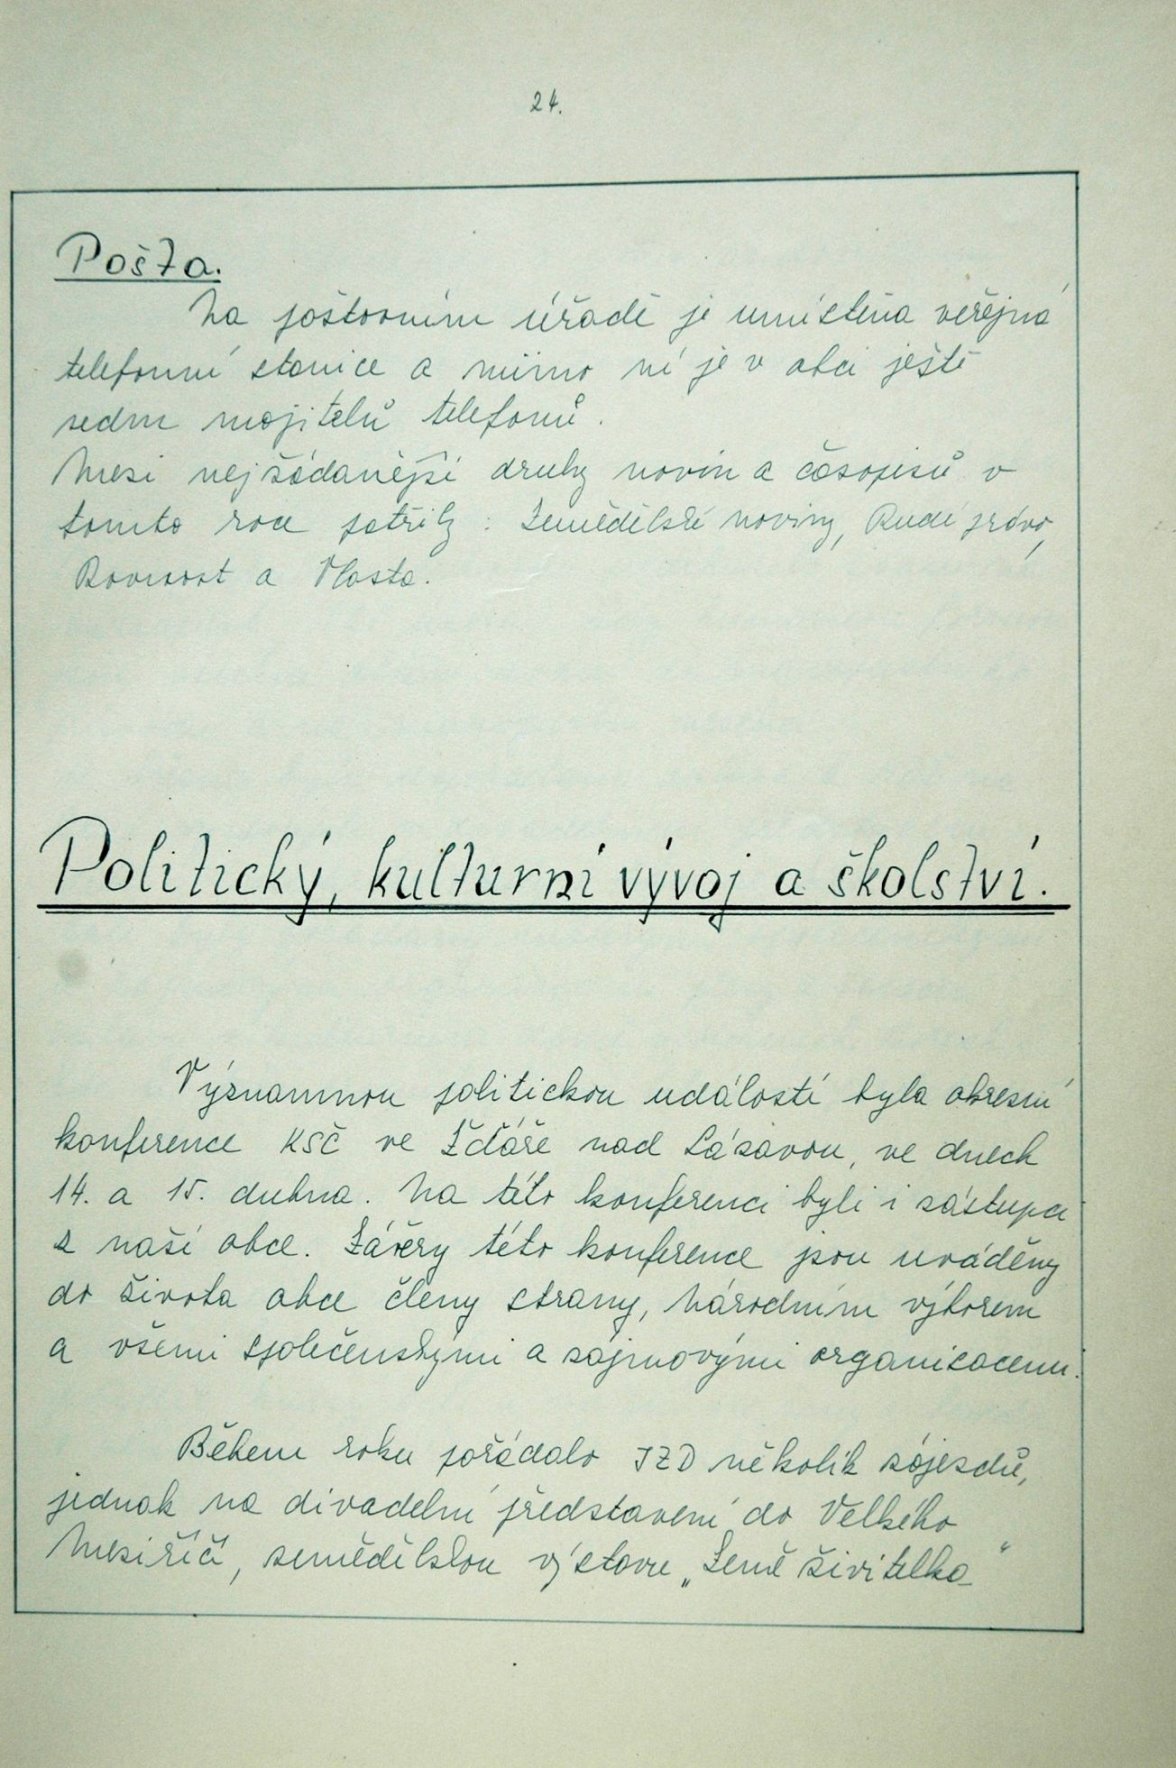 24.
Pošta.
Na poštovním úřadě je umístěna veřejná
telefonní stanice a mimo ní je v obci ještě
sedm majitelů telefonů.
Mezi nejžádanější druhy novin a časopisů v
tomto roce patřily: Zemědělské noviny, Rudé právo,
Rovnost a Vlasta.
Politický, kulturní vývoj a školství.
Významnou politickou událostí byla okresní
konference KSČ ve Žďáře nad Sázavou, ve dnech
14. a 15. dubna. Na této konferenci byli i zástupci
z naší obce. Závěry této konference jsou uváděny
do života obce členy strany, Národním výborem
a všemi společenskými a zájmovými organizacemi.
Během roku pořádalo JZD několik zájezdů,
jednak na divadelní představení do Velkého
Meziříčí, zemědělskou výstavu „Země živitelka“